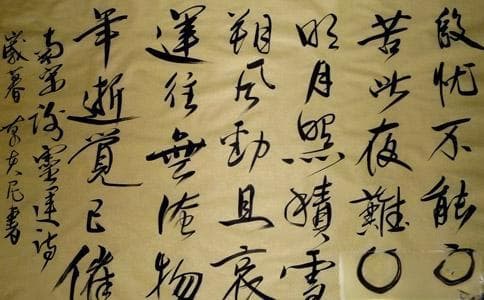 殷忧不能
苦此夜難
明月照積雪
朔風動且哀
運往無淹物
年逝覺已催
南宋謝靈運詩
歲暮 書